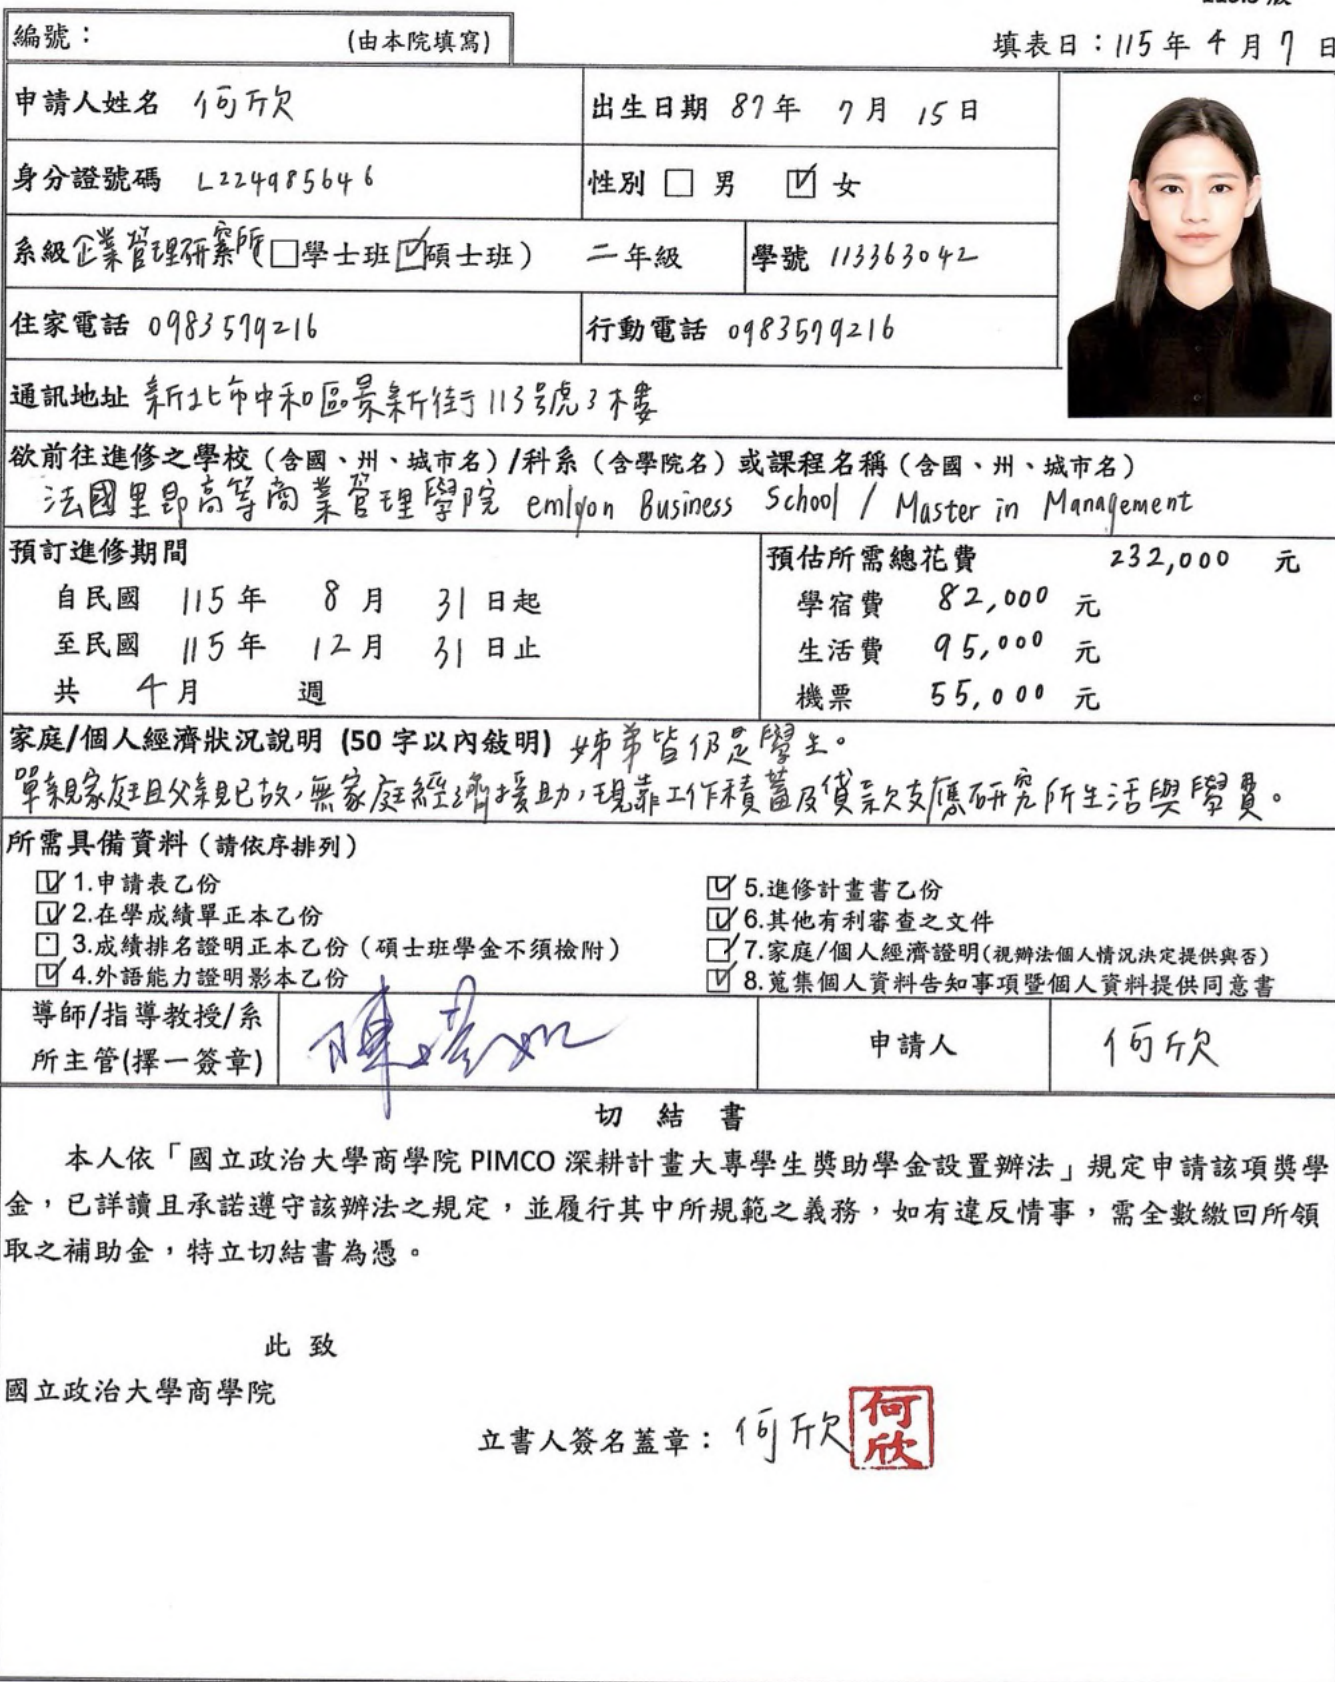 編號： (由本院填寫)
填表日：115年 4月 7日
申請人姓名 何欣
出生日期 87年 7月 15日
身分證號碼 L224985646
性別 □ 男 ☑ 女
系級 企業管理研究所(□學士班☑碩士班) 二年級
學號 113363042
住家電話 0983579216
行動電話 0983579216
通訊地址 新北市中和區景新街113號3樓
欲前往進修之學校（含國、州、城市名）/科系（含學院名）或課程名稱（含國、州、城市名）
法國里昂高等商業管理學院 emlyon Business School / Master in Management
預訂進修期間
自民國 115年 8月 31日起
至民國 115年 12月 31日止
共 4月 週
預估所需總花費 232,000 元
學宿費 82,000 元
生活費 95,000 元
機票 55,000 元
家庭/個人經濟狀況說明 (50字以內敍明) 姊弟皆仍是學生。
單親家庭且父親已故，無家庭經濟援助，現靠工作積蓄及貸款支應研究所生活與學費。
所需具備資料（請依序排列）
☑ 1.申請表乙份
☑ 2.在學成績單正本乙份
□ 3.成績排名證明正本乙份（碩士班學金不須檢附）
☑ 4.外語能力證明影本乙份
☑ 5.進修計畫書乙份
☑ 6.其他有利審查之文件
☑ 7.家庭/個人經濟證明(視辦法個人情況決定提供與否)
☑ 8.蒐集個人資料告知事項暨個人資料提供同意書
導師/指導教授/系
所主管(擇一簽章)
申請人 何欣
切 結 書
本人依「國立政治大學商學院 PIMCO 深耕計畫大專學生獎助學金設置辦法」規定申請該項獎學
金，已詳讀且承諾遵守該辦法之規定，並履行其中所規範之義務，如有違反情事，需全數繳回所領
取之補助金，特立切結書為憑。
此 致
國立政治大學商學院
立書人簽名蓋章：何欣
何欣